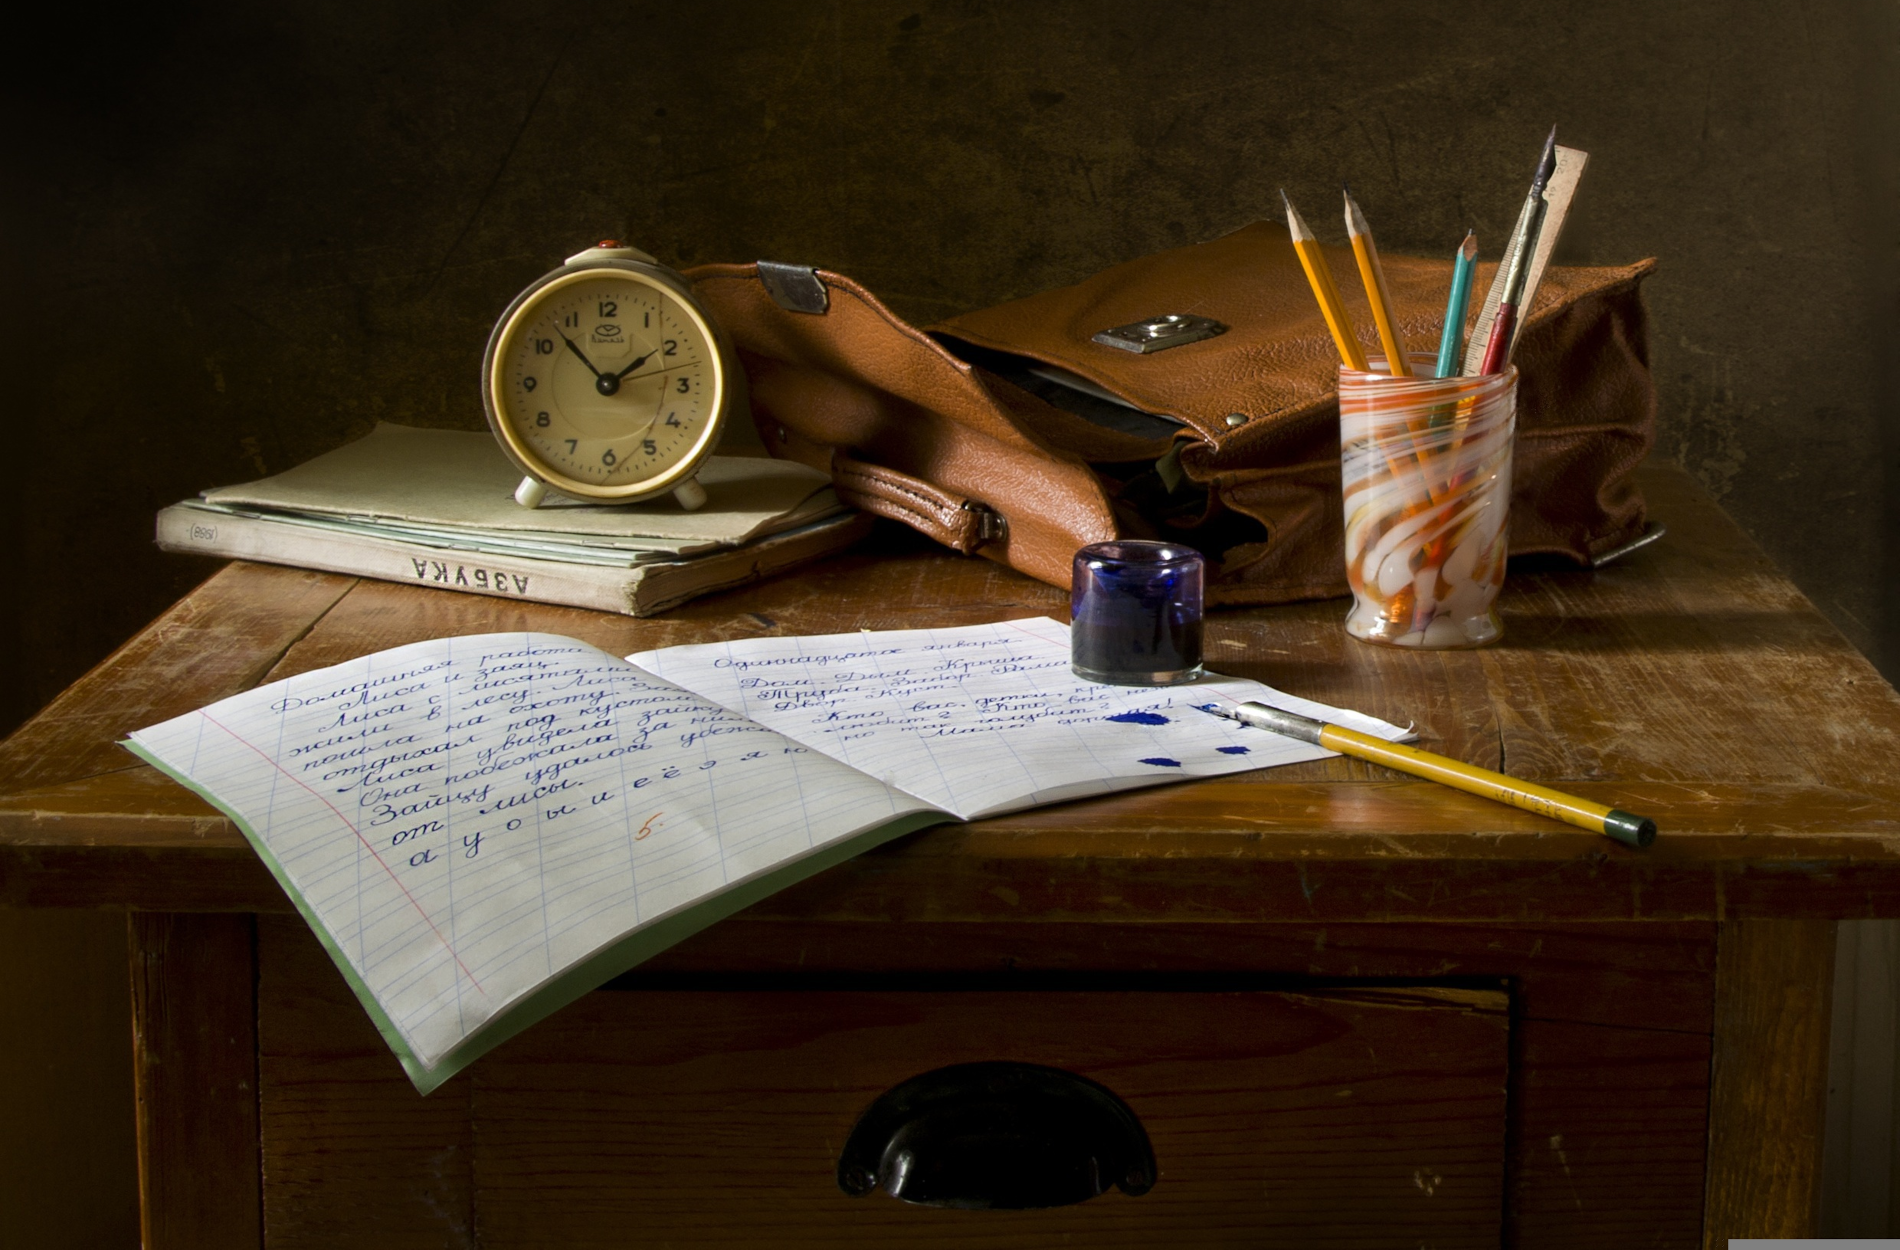 12
1
2
3
4
5
6
7
8
9
10
11
(1958)
АЗБУКА
Домашняя работа
Лиса и заяц.
Лиса с лисятами
жили в лесу. Лиса
пошла на охоту.
отдыхал под кустом.
Лиса увидела зайку
Она побежала за ним
Зайцу удалось
от лисы.
а у о ы и е ё э я ю
5
Одиннадцатое января
Дом. Дым. Крыша
Труба. Забор. Рама
Двор. Куст.
Кто вас, детки,
любит? Кто вас
но так голубит?
Мама дорогая!